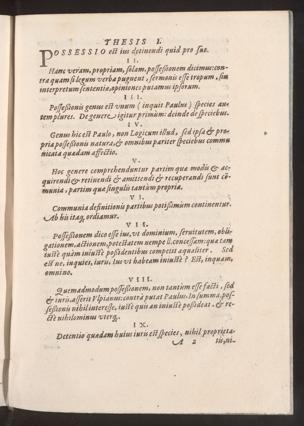 THESIS I.
POSSESSIO est ius detinendi quid pro suo.
II.
Hanc veram, propriam, solam, possessionem dicimus: con-
tra quam si legum verba pugnent, sermonis esse tropum, sin
interpretum sententia, opiniones putamus ipsorum.
III.
Possessionis genus est vnum (inquit Paulus) species au-
tem plures. De genere igitur primùm: deinde de speciebus.
IV.
Genus hic est Paulo, non Logicum illud, sed ipsa & pro-
pria possessionis natura, & omnibus pariter speciebus commu
nicata quædam affectio.
V.
Hoc genere comprehenduntur partim quæ modis & ac-
quirendi & retinendi & amittendi & recuperandi sunt cō-
munia, partim quæ singulis tantùm propria.
VI.
Communia definitionis partibus potissimùm continentur.
Ab his itaq, ordiamur.
VII.
Possessionem dico esse ius, vt dominium, seruitutem, obli-
gationem, actionem, potestatem nempe ll. concessam: quæ tam
iustè quàm iniustè possidentibus competat æqualiter. Sed
est ne, inquies, iuris, ius vt habeam iniustè? Est, inquam,
omnino.
VIII.
Quemadmodum possessionem, non tantùm esse facti, sed
& iuris asserit Vlpianus: contrà putat Paulus. In summa, pos-
sessionis nihil interesse, iustè quis an iniustè possideat. & re-
ctè nihilominus vterq.
IX.
Detentio quædam huius iuris est species, nihil proprieta-
A 2 tis, ni-